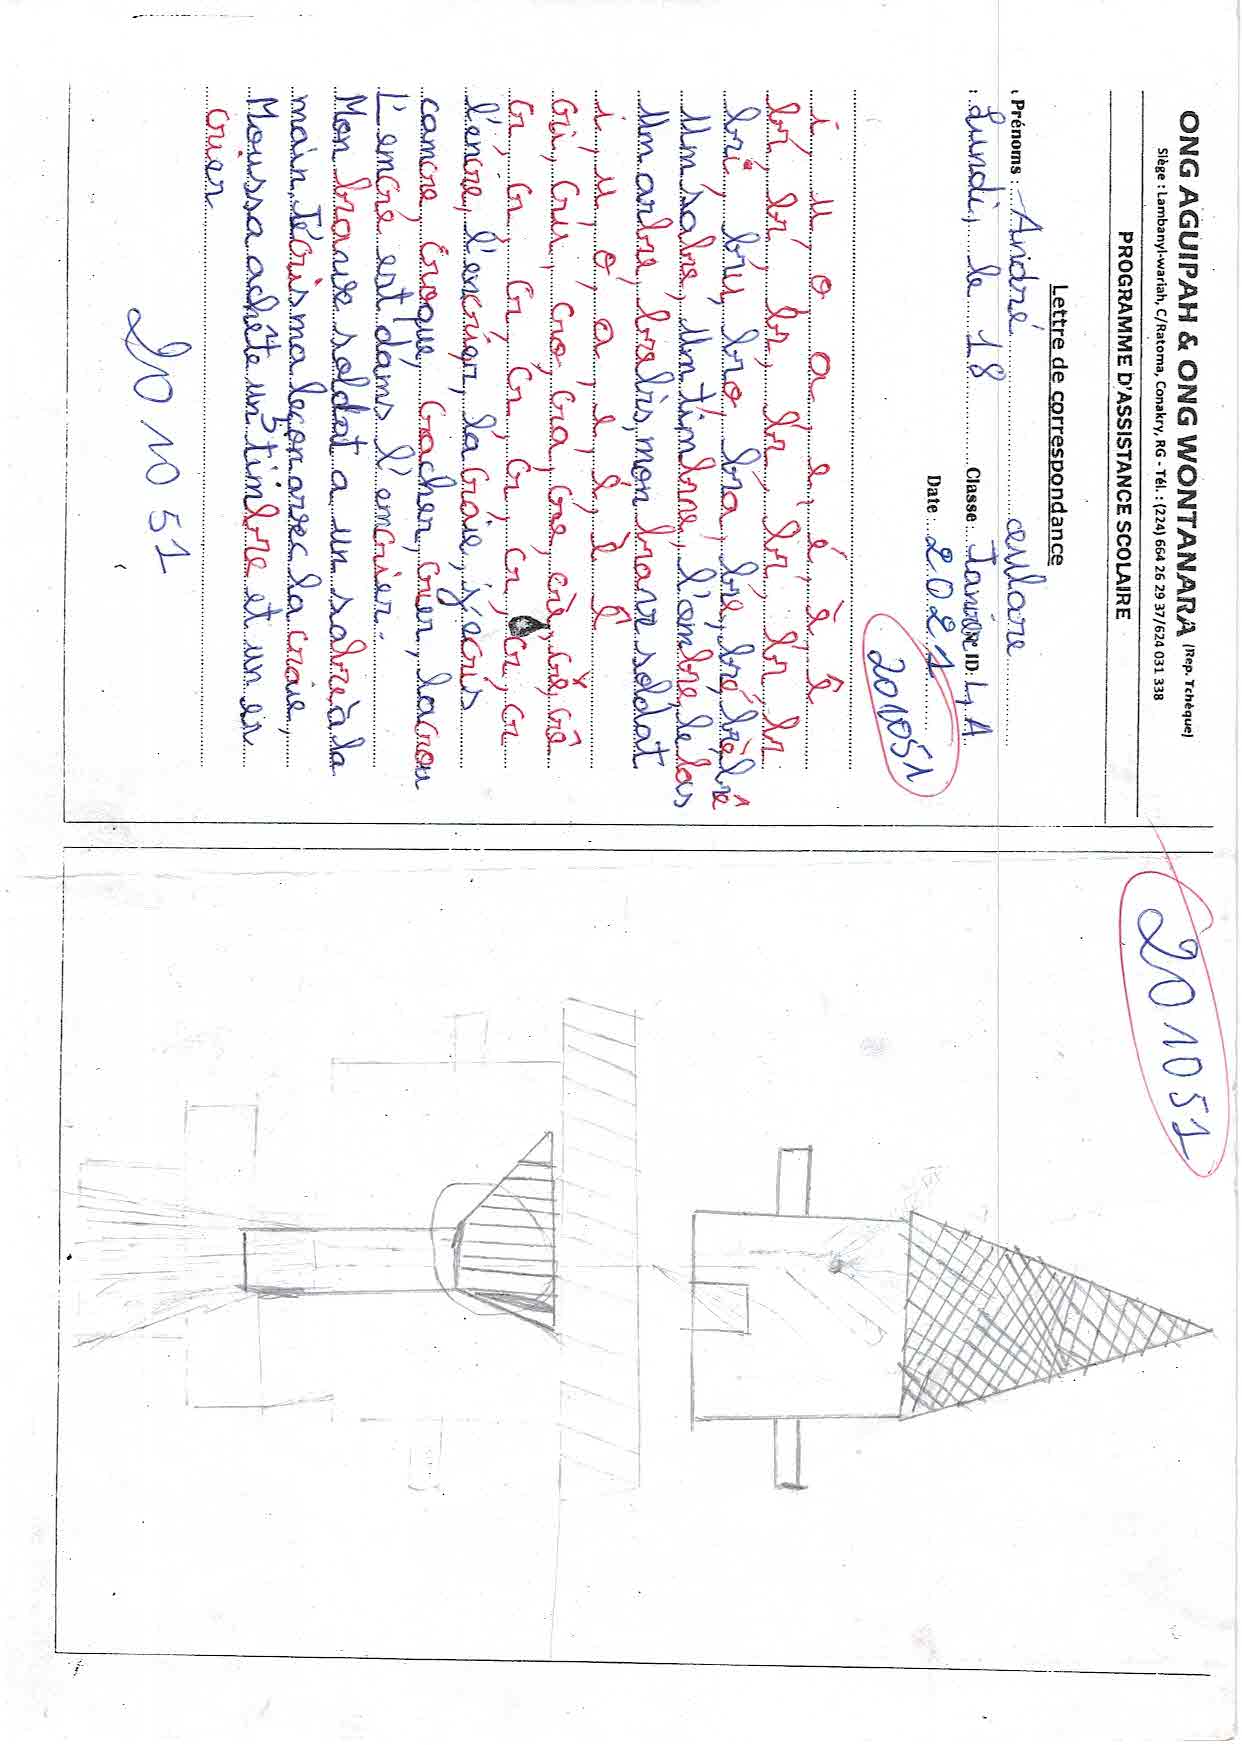 ONG AGUIPAH & ONG WONTANARA (Rep. Tchèque)
Siège : Lambanyi-wariah, C/Ratoma, Conakry, RG - Tél. : (224) 664 26 29 37/624 031 338
PROGRAMME D'ASSISTANCE SCOLAIRE
Lettre de correspondance
Prénoms : André
Lundi, le 18 Classe : Janvier N° ID: L, A
Date : 2021
201051
i, u o a e, é, è ê
br br, br, br, br, br, br
bri, bru, bro, bra, bre, bré, brè brê
Un sabre, un timbre, l'ombre, le bras
Un arbre, brebis, mon brave soldat
i, u, o, a, e, é, è ê
cri, cru, cro, cra, cre, cré, crè, crê
cr, cr, cr, cr, cr, cr, cr, cr
l'encre, l'encrier, la craie, j'ecris
cancre, croque, cracher, crier, la crou
L'encre est dans l'encrier.
Mon brave soldat a un sabre à la
main. J'écris ma leçon avec la craie,
Moussa achète un timbre et un en
crier
201051
201051